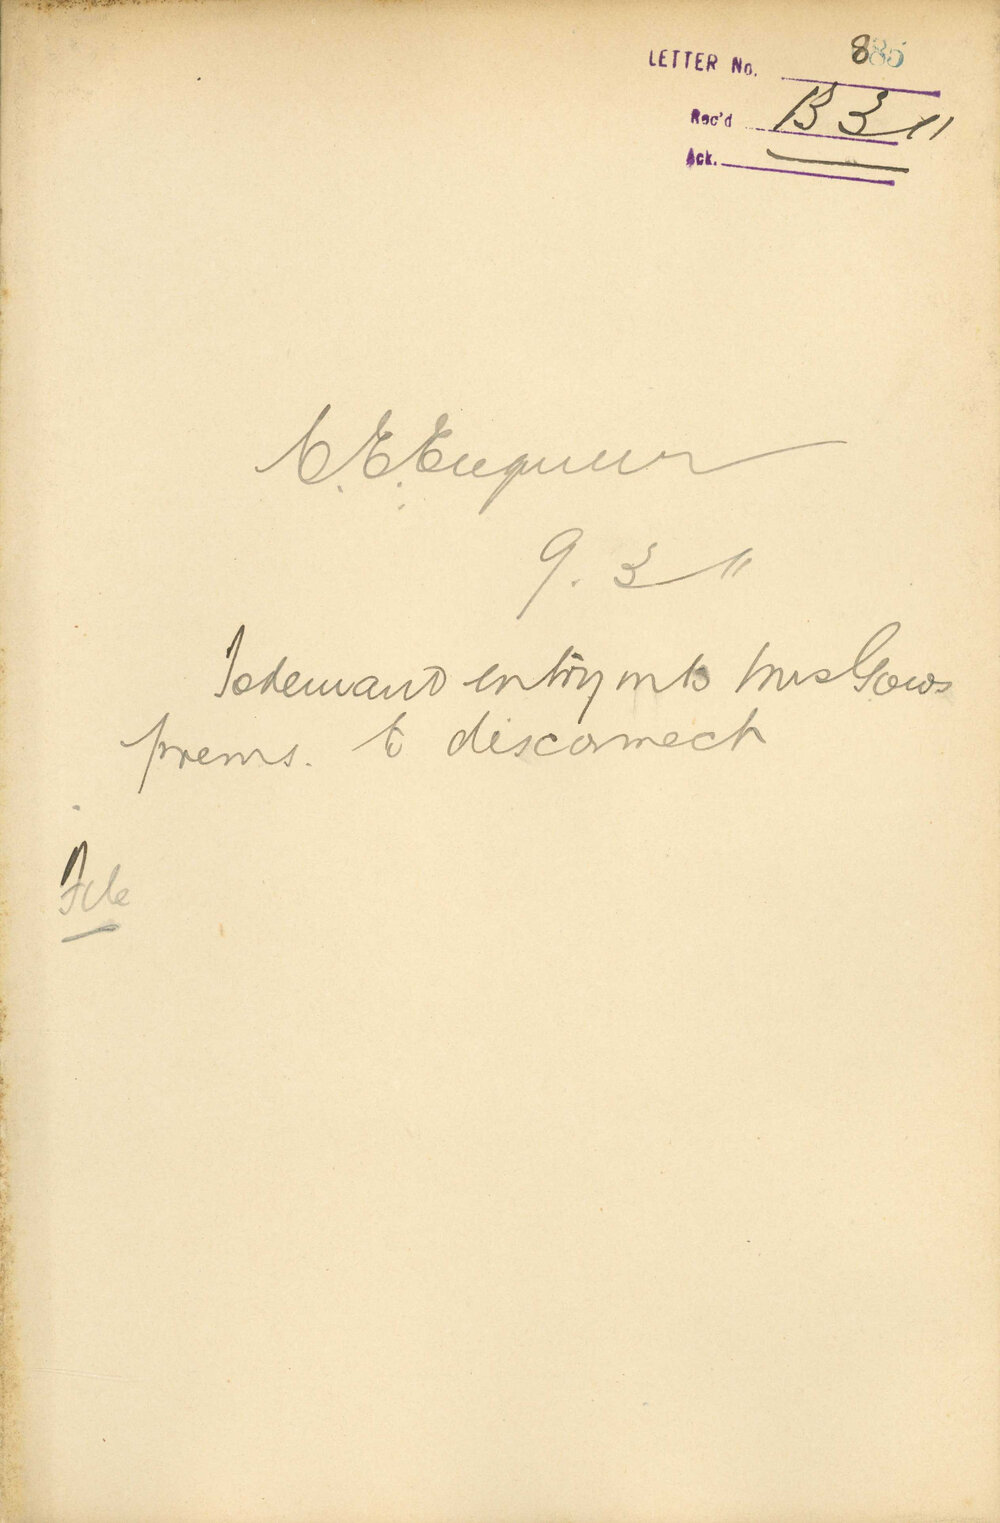 LETTER No. 885
Rec'd 13 3 11
Ack.
C. E. Engineer
9. 3 11
To demand entry into Mrs Gows
prems. to disconnect
File